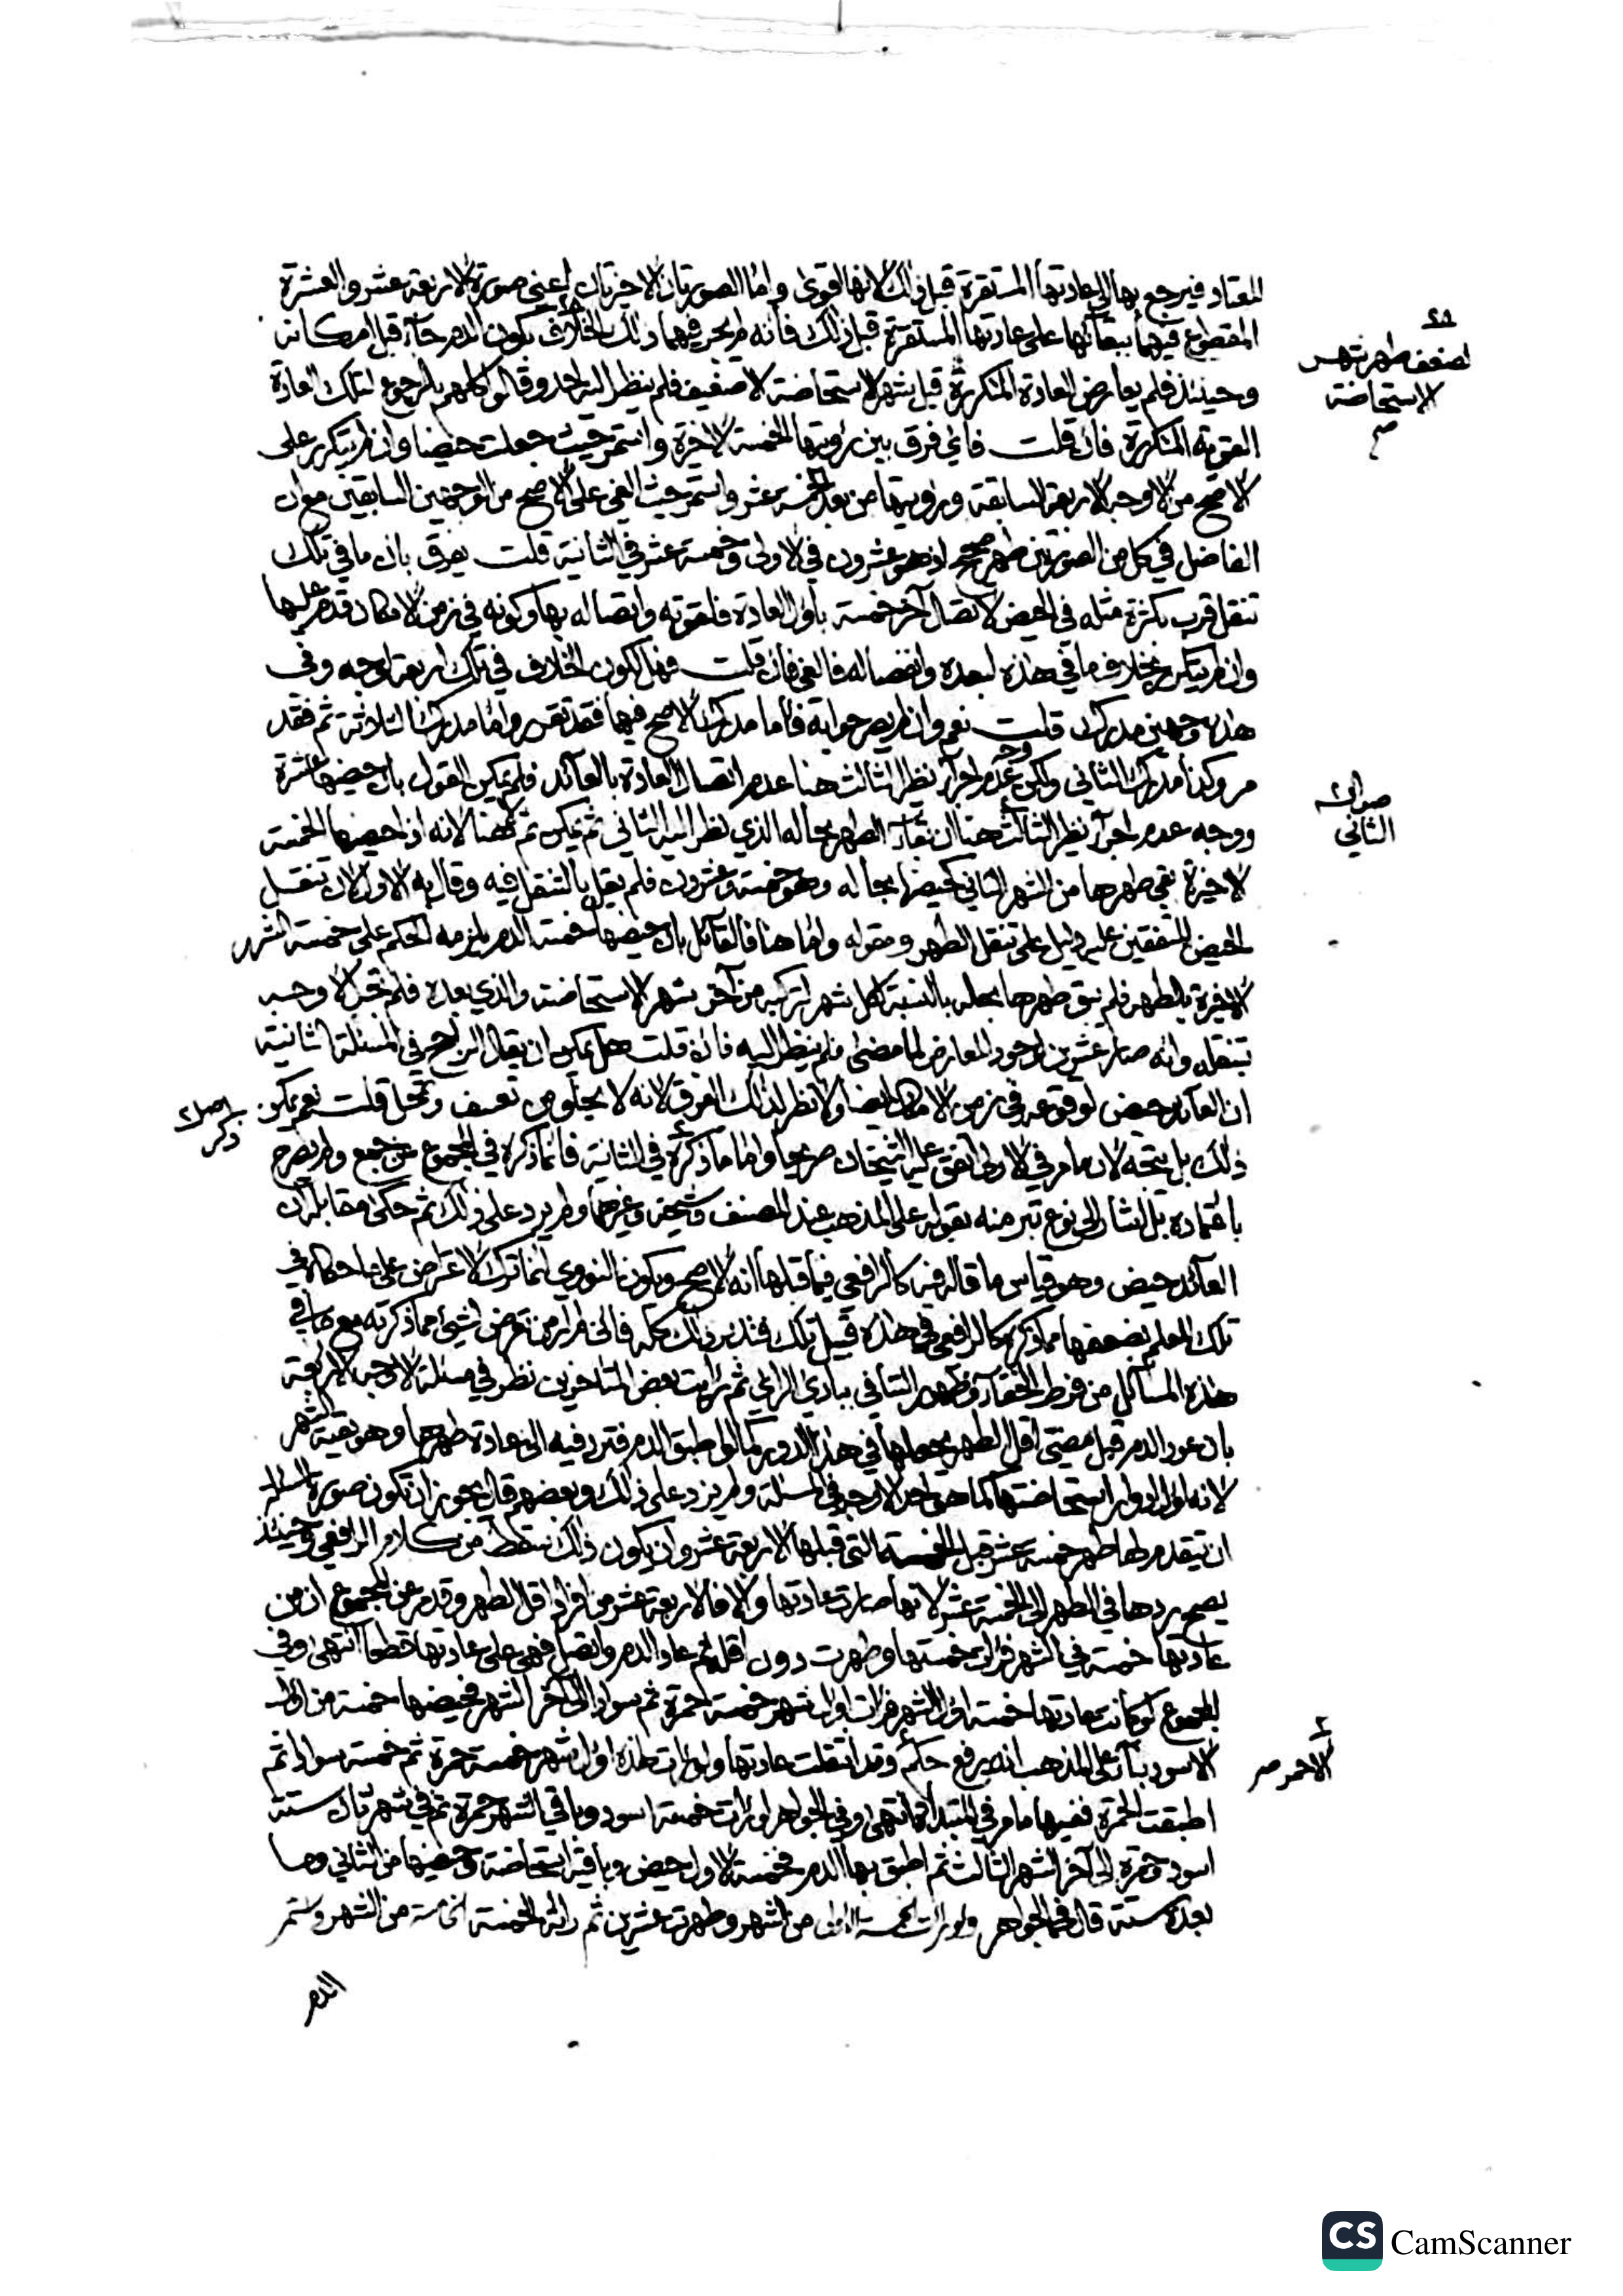 المعتاد فيرجع بها الى عادتها المستقرة قبل ذلك لانها اقوى واما الصورتان الاخيرتان اعني صورة الاربعة عشر والعشرة
المقطوع فيهما ببقائها على عادتها المستقرة قبل ذلك فانه لم يجر فيهما ذلك الخلاف لكون الدم جاء قبل امكانه
وحينئذ فلم يعارض العادة المتكررة قبل شهر الاستحاضة الا ضعيف فلم ينظر اليه احد وقالوا كلهم بالرجوع لتلك العادة
لضعف طهر شهر
الاستحاضة
القوية المتكررة فان قلت فاي فرق بين رؤيتها الخمسة الاخيرة واستمر حيث جعلت حيضا وان لم يتكرر على
الاصح من الاوجه الاربعة السابقة ورؤيتها من بعد خمسة عشر واستمر حيث الغي على الاصح من الوجهين السابقين مع ان
الفاصل في كل من الصورتين طهر صحيح اذ هو عشرون في الاولى وخمسة عشر في الثانية قلت يفرق بان ما في تلك
تنقل قرب بكثرة مثله في الحيض لاتصال آخر خمسة باول العادة فلقوته واتصاله بها وكونه في زمن الامكان قدم عليها
وان لم يتكرر بخلاف ما في هذه لبعده وانفصاله فالغي فان قلت فهل لكون الخلاف في تلك اربعة اوجه وفي
هذه وجهين مدرك قلت نعم وان لم يصرحوا به فاما مدرك الاصح فيها فقد تقرر واما مدرك الثلاثة ثم فقد
مر وكذا مدرك الثاني ولكن وجه عدم اجراء نظير الثالث هنا عدم اتصال العادة بالعائد فلم يمكن القول بان حيضها عشرة
صوابه
الثاني
ووجه عدم اجراء نظير الثالث هنا ان بقاء الطهر بحاله الذي نظر اليه الثاني ثم يمكن ثم لا هنا لانه اذا حيضها الخمسة
الاخيرة بقي طهرها من الشهر الثاني كحيضها بحاله وهو خمسة وعشرون فلم يقل بالتنقل فيه وقال به الاول لان تنقل
الحيض المتفقين عليه دليل على تنقل الطهر ومقوله واما هنا فالقائل بان حيضها خمسة الدم يلزمه الحكم على خمسة الشهر
الاخيرة بالطهر فلم يبق طهرها بحاله بالنسبة لكل شهر لتركبه من آخر شهر الاستحاضة والذي بعده فلم يجز الا وجه
تنقله وانه صار عشرين لوجود المعارض لما مضى فلم ينظر اليه فان قلت هل يمكن ان يقال الراجح في المسئلة الثانية
ان العائد حيض لوقوعه في زمن الامكان ايضا ولا نظر لذلك الفرق لانه لا يخلو من تعسف وتمحل قلت نعم يمكن
ذلك بل يتجه لان ما مر في الاولى اتفق عليه الشيخان صريحا واما ما ذكره في الثانية فانما ذكره في المجموع عن جمع ولم يصرح
باعتماده بل اشار الى نوع تبر منه بقوله على المذهب عند المصنف وشيخه وغيرهما ولم يزد على ذلك ثم حكى مقابله ان
العائد حيض وهو قياس ما قاله هو كالرافعي فيما قبلها انه الاصح ويكون النووي انما ترك الاعتراض على ما حكاه في
تلك لعلم بضعفها مما ذكره كالرافعي في هذه قبيل تلك فتدبر ذلك كله فاني لم ار من تعرض لشيء مما ذكرته مع ما في
هذه المسائل من فرط الخفاء وظهور التنافي ببادي الراي ثم رايت بعض المتاخرين نظر في مسئلة الاوجه الاربعة
بان عود الدم قبل مضي اقل الطهر يجعلها في هذا الدور كما لو اطبق الدم فترد فيه الى عادة طهرها وهو بقية الشهر
لانه اول ادوار استحاضتها كما هو احد الاوجه في المسئلة ولم يزد على ذلك وبعضهم قال يجوز ان تكون صورة المسئلة
ان يتقدم لها طهر خمسة عشر قبل الخمسة التي قبلها الاربعة عشر وان يكون ذلك سقط من كلام الرافعي وحينئذ
يصح ردها في الطهر الى الخمسة عشر لانها صارت عادتها والا فالاربعة عشر من افراد اقل الطهر وقدم عن المجموع ان من
عادتها خمسة في الشهر فرأت خمستها وطهرت دون اقله ثم عاد الدم واتصل فهي على عادتها قطعا انتهى وفي
المجموع لو كانت عادتها خمسة اول الشهر فرات اول شهر خمسة حمرة ثم سوادا الى آخر الشهر فحيضها خمسة من اول
الاسود بناء على المذهب انه يرفع حكم وقد انتقلت عادتها ولو رات هذه اول شهر خمسة حمرة ثم خمسة سوادا ثم
الاحمر صح
اطبقت الحمرة ففيها ما مر في المبتداة انتهى وفي الجواهر لو رات خمسة اسود وباقي الشهر حمرة ثم في شهر ثان ستة
اسود وحمرة الى آخر الشهر الثالث ثم اطبق بها الدم فخمسة الاول حيض وباقيه استحاضة وحيضها من الثاني وما
بعده ستة قال في الجواهر ولو رات الخمسة الاولى من الشهر وطهرت عشرين ثم رات الخمسة الخامسة من الشهر واستمر
الدم
CS CamScanner